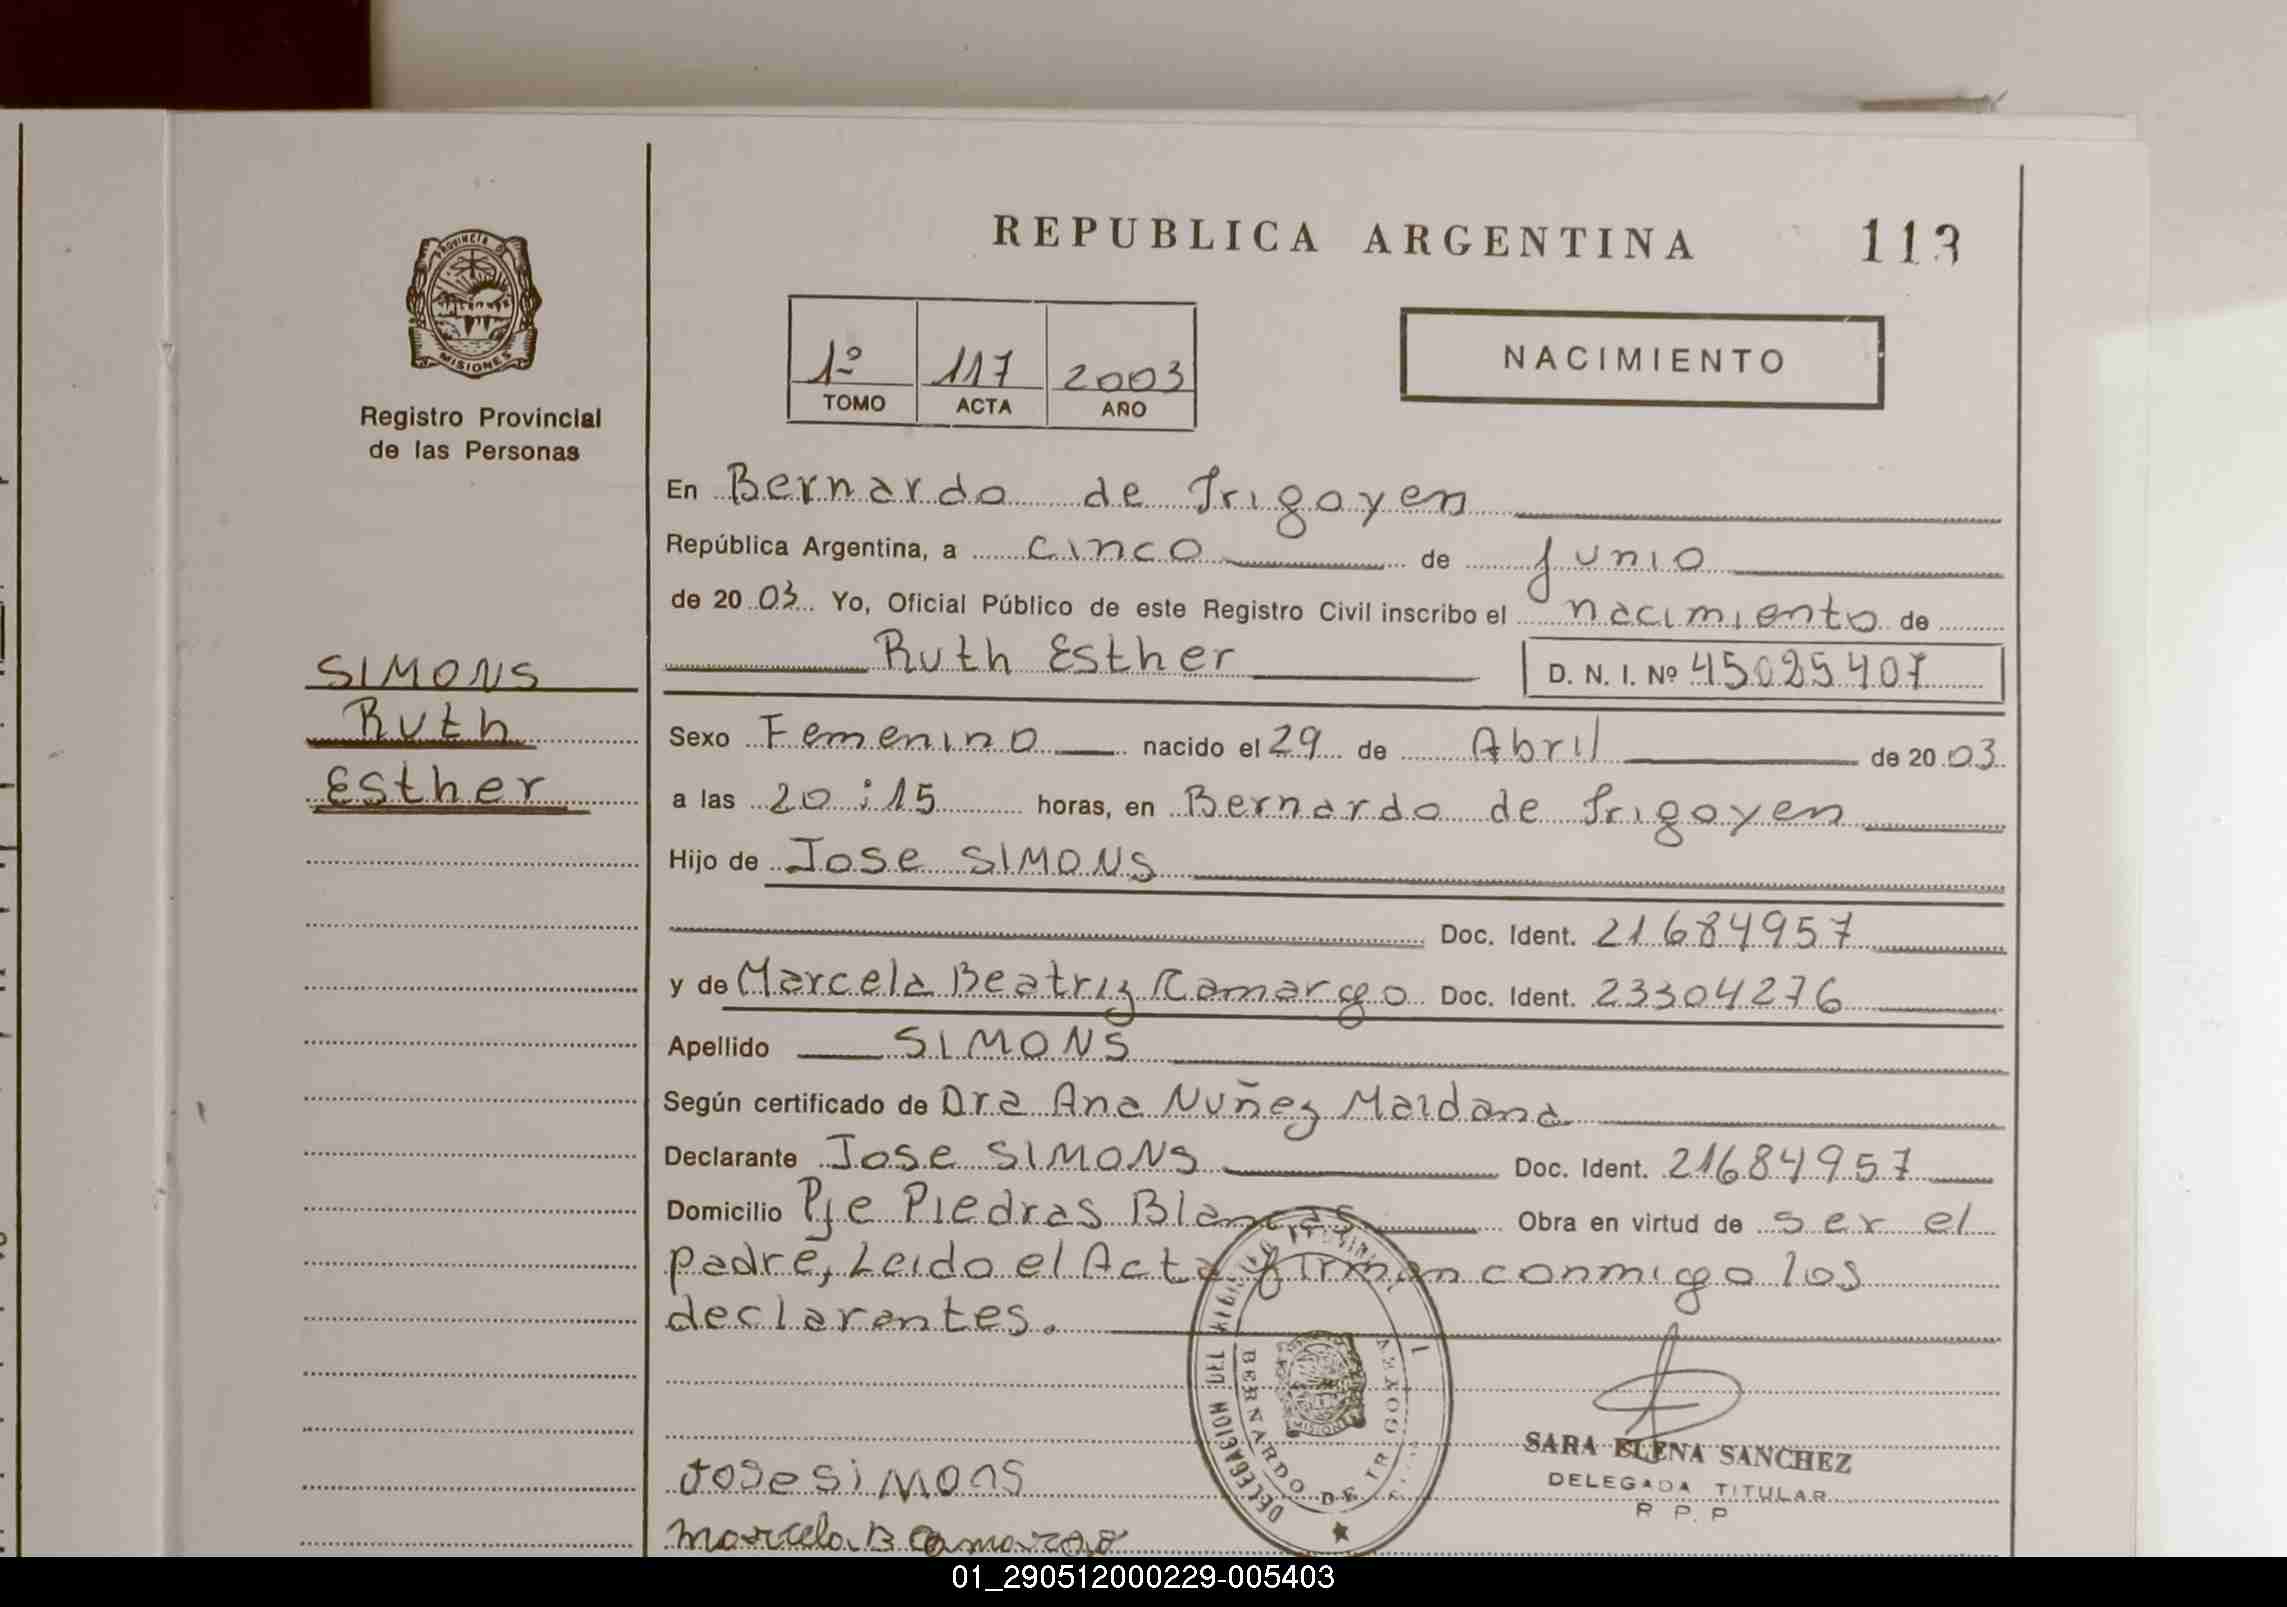 REPUBLICA ARGENTINA
113
PROVINCIA DE
MISIONES
Registro Provincial
de las Personas
1º 117 2003
TOMO ACTA AÑO
NACIMIENTO
En Bernardo de Irigoyen
República Argentina, a cinco de junio
de 2003 Yo, Oficial Público de este Registro Civil inscribo el nacimiento de
Ruth Esther D. N. I. Nº 45025407
SIMONS
Ruth
Esther
Sexo Femenino nacido el 29 de Abril de 2003
a las 20:15 horas, en Bernardo de Irigoyen
Hijo de Jose SIMONS
Doc. Ident. 21684957
y de Marcela Beatriz Camargo Doc. Ident. 23304276
Apellido SIMONS
Según certificado de Dra Ana Nuñez Maidana
Declarante Jose SIMONS Doc. Ident. 21684957
Domicilio Pje Piedras Blancas Obra en virtud de ser el
padre, Leido el Acta firman conmigo los
declarantes.
DELEGACION DEL REGISTRO PROVINCIAL
BERNARDO DE IRIGOYEN
SARA ELENA SANCHEZ
DELEGADA TITULAR
R P. P
Jose SiMONS
Marcela B Camargo
01_290512000229-005403